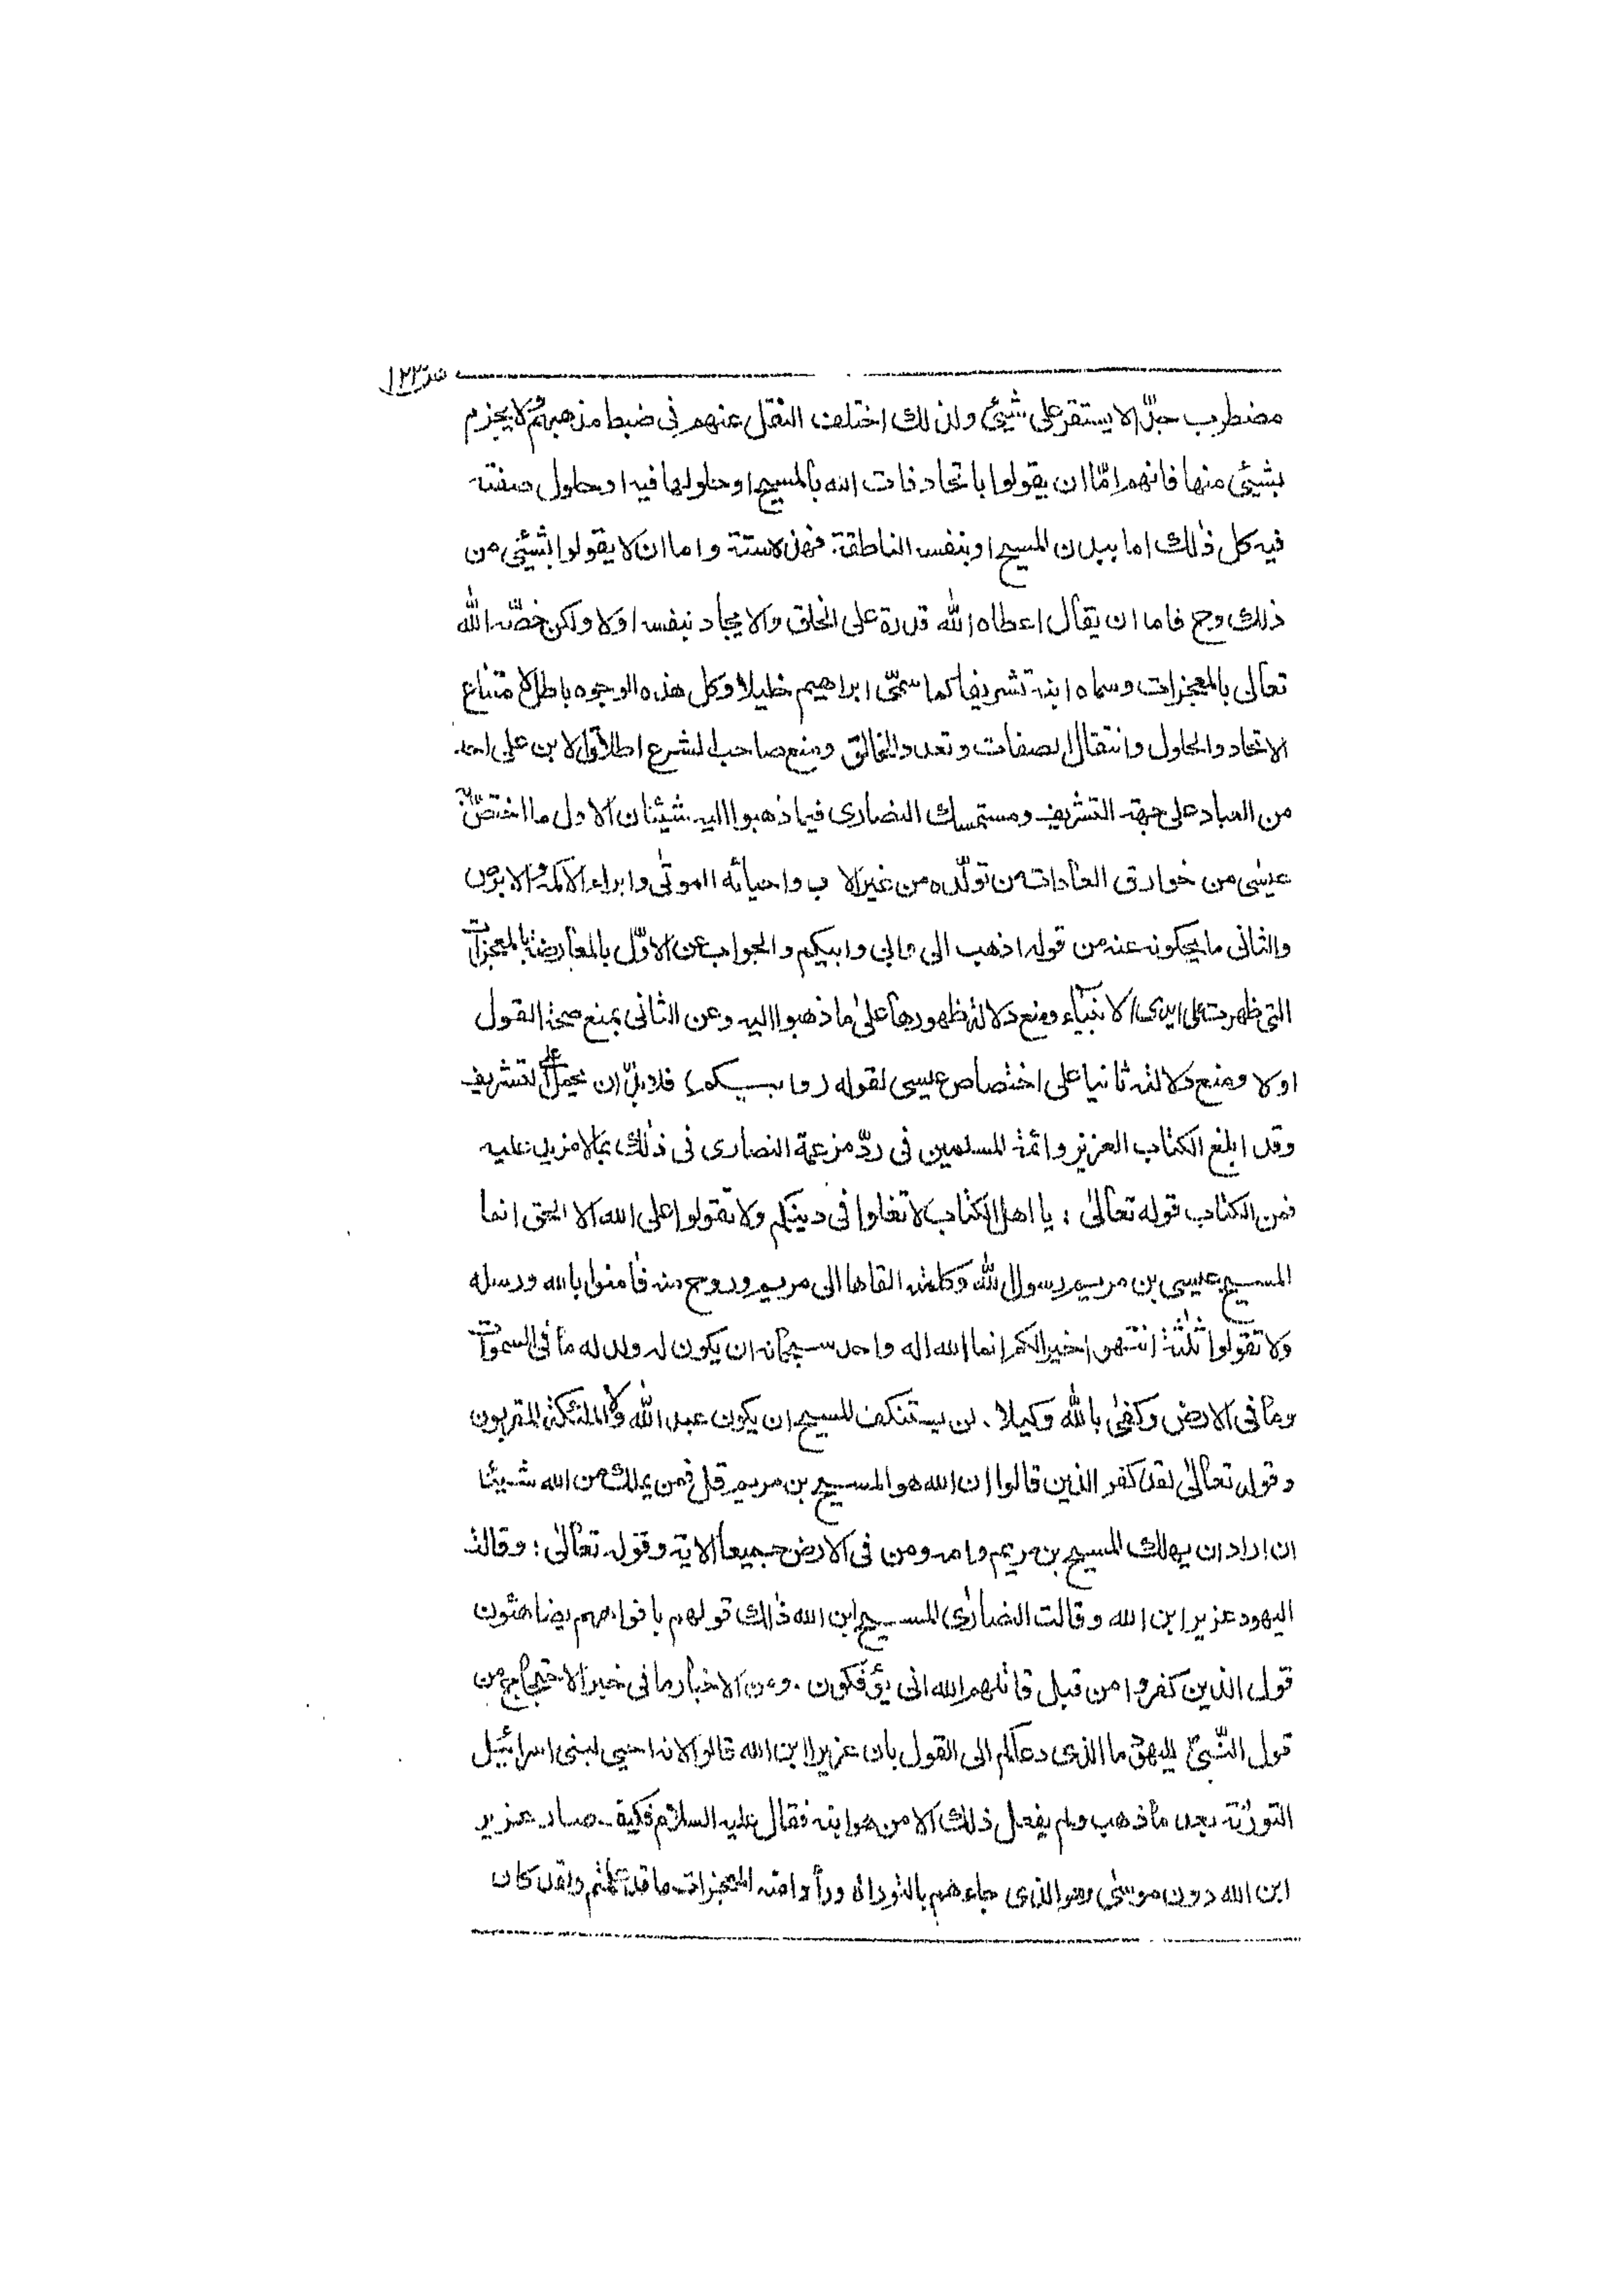 مضطرب جدّا لا يستقر على شيئ ولذلك اختلف النقل عنهم فى ضبط مذهبهم ثم لا يجزم
بشيئ منها فانهم امّا ان يقولوا باتحاد ذات الله بالمسيح او حلولها فيه او حلول صفته
فيه كل ذٰلك اما ببدن المسيح او بنفسه الناطقة. فهذه ستة واما ان لا يقولوا بشيئ من
ذلك وح فاما ان يقال اعطاه الله قدرة على الخلق والايجاد بنفسه اولا ولكن خصّه الله
تعالى بالمعجزات وسماه ابنه تشريفا كما سمّى ابراهيم خليلا وكل هذه الوجوه باطل لامتناع
الاتحاد والحلول وانتقال الصفات وتعدد الخالق ومنع صاحب الشرع اطلاق الابن على احد
من العباد على جهة التشريف ومستمسك النصارى فيما ذهبوا اليه شيئان الاول ما اختصّ به
عيسٰى من خوارق العادات من تولّده من غير الاب واحيائه الموتٰى وابراء الاكمه والابرص
والثانى ما يحكونه عنه من قوله اذهب الى ابى وابيكم والجواب عن الاوّل بالمعارضة بالمعجزات
التى ظهرت على ايدى الانبياء ومنع دلالة ظهورها علىٰ ما ذهبوا اليه وعن الثانى بمنع صحة القول
اولا ومنع دلالته ثانيا على اختصاص عيسى لقوله (وابيكم) فلابدّ ان يحمل على التشريف
وقد ابلغ الكتاب العزيز وائمة المسلمين فى ردّ مزعمة النصارى فى ذٰلك بمالا مزيد عليه
فمن الكتاب قوله تعالىٰ : يا اهل الكتاب لا تغلوا فى دينكم ولا تقولوا على الله الا الحق انما
المسيح عيسى بن مريم رسول الله وكلمته القاها الى مريم وروح منه فامنوا بالله ورسله
ولا تقولوا ثلٰثة انتهوا خيرا لكم انما الله اله واحد سبحانه ان يكون له ولد له ما فى السمٰوات
وما فى الارض وكفىٰ بالله وكيلا . لن يستنكف المسيح ان يكون عبد الله ولا الملئكة المقربون
وقوله تعالىٰ لقد كفر الذين قالوا ان الله هو المسيح بن مريم قل فمن يملك من الله شيئا
ان اراد ان يهلك المسيح بن مريم وامه ومن فى الارض جميعا الاية وقوله تعالىٰ : وقالت
اليهود عزير ابن الله وقالت النصارٰى المسيح ابن الله ذٰلك قولهم بافواههم يضاهئون
قول الذين كفروا من قبل قاتلهم الله انى يؤفكون . ومن الاخبار ما فى خبر الاحتجاج من
قول النّبىؐ لليهود ما الذى دعاكم الى القول بان عزيرا ابن الله قالوا لانه احيى لبنى اسرائيل
التورٰىة بعد ما ذهب ولم يفعل ذلك الا من هو ابنه فقال عليه السلام فكيف صار عزير
ابن الله دون موسٰى وهو الذى جاءهم بالتوراة ورأوا منه المعجزات ما قد علمتم ولقد كان